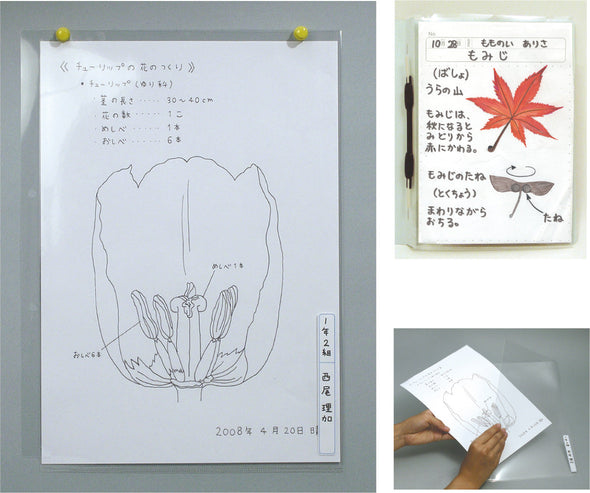 《チューリップの花のつくり》
・チューリップ(ゆり科)
・茎の長さ……30〜40cm
・花の数……1こ
・めしべ……1本
・おしべ……6本
めしべ1本
おしべ6本
1年2組 西尾 理加
2008年4月20日 晴
No.
10 28 もものい ありさ
もみじ
(ばしょ)
うらの山
もみじは、
秋になると
みどりから
赤にかわる。
もみじのたね
(とくちょう)
まわりながら
おちる。
たね